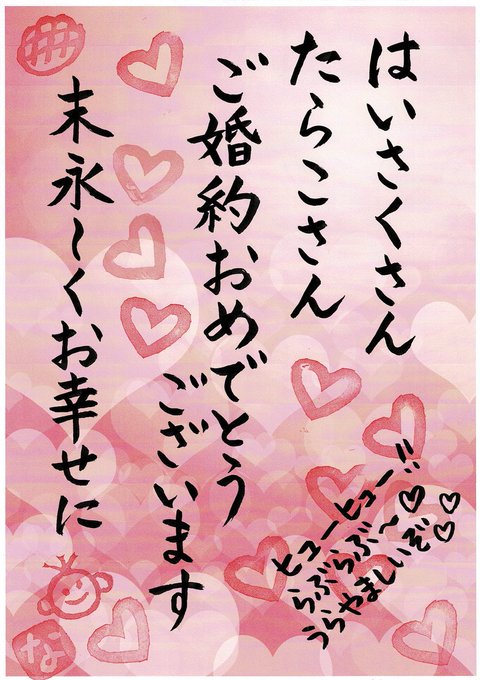 はいさくさん
たらこさん
ご婚約おめでとう
ございます
末永〜くお幸せに
ヒューヒュー!!
らぶらぶ〜♡♡
うらやましいぞ♡
な